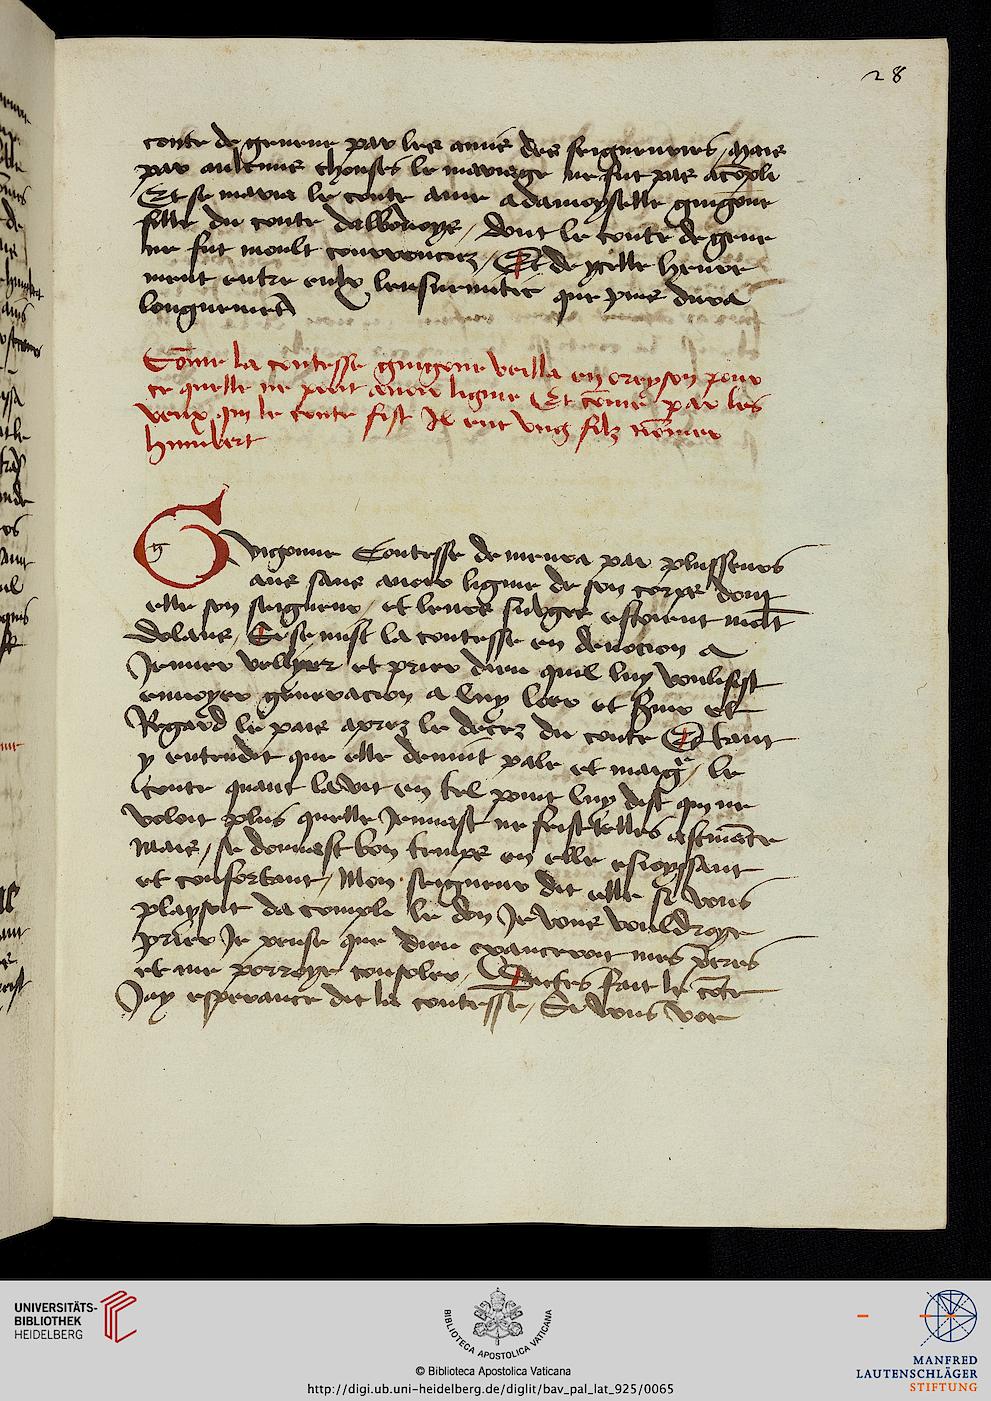 28
conte de geneue par les amis des seigneuries / Mais
par aulcunes chouses le mariage ne fut pas acōpli
Et se maria le conte auec adamoyselle guigone
fille du conte dalbonoys / dont le conte de gene
ue fut moult courroucez / Et de ycelle heure
ment entre eulx lensuemitee que puis dura
longuemēt
Cōme la contesse guigone veilla en oreyson pour
ce quelle ne peut auoir lignie Et cōme par les
veux qui le conte fist Il eut vng filz nōmee
humbert
Guigonne Contesse demeura par plusseurs
ans sans auoir lignie de son corps dont
elle son seigneur / et leurs subges estoient molt
dolans / Et se mist la contesse en deuocion a
Jeuner vellyer et prier dieu quil luy voulisist
enuoyer generacion a luy loer et seruir et
Regard le pais aprez le decez du conte Et tant
y entendit que elle deuint pale et maigre / le
Conte quant la vit en tel point luy dist qui ne
voloit plus quelle Jeunast ne feist telles astinēce
Mais / se donnast bon temps en elle esioyssant
et confortant / Mon seigneur dit elle si vous
playsoit da compli le don Je vous vouldroye
prier Je pense que dieu exauceroit mes p̄eres
et me porroye consoler / Dictes fait le cōte
Jay esperance dit la contesse / Si vous vor
UNIVERSITÄTS-
BIBLIOTHEK
HEIDELBERG
BIBLIOTECA APOSTOLICA VATICANA
© Biblioteca Apostolica Vaticana
http://digi.ub.uni-heidelberg.de/diglit/bav_pal_lat_925/0065
MANFRED
LAUTENSCHLÄGER
STIFTUNG